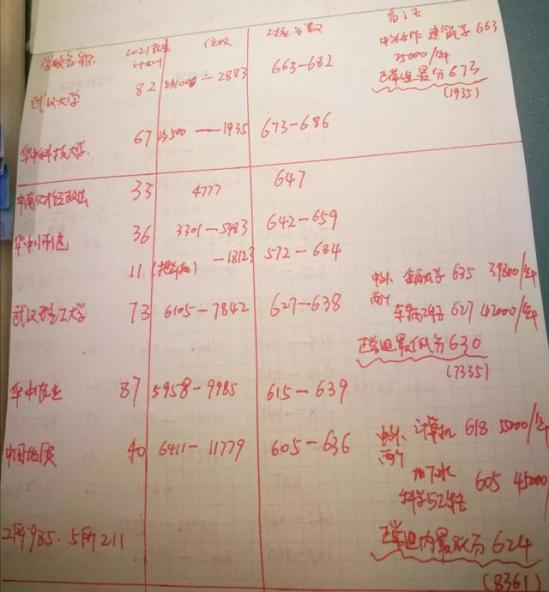 学校名称 2021招生计划 位次 对应分数 备注
武汉大学 82 2883 663-682 中外合作 建筑学 663
75000/年
正常组最低分673
(1935)
华中科技大学 67 500——1935 673-686
中南财经政法 33 4777 647
华中师范 36 3301-5483 642-659
11 -18123 572-684
武汉理工大学 73 6105-7842 627-638 中外 635 39800/年
两个 车辆工程 627 42000/年
正常组最低分630
(7335)
华中农业 87 5958-9985 615-639
中国地质 40 6411-11779 605-636 中外 计算机 618 55000/年
两个 地下水
科学与工程 605 45000/年
2所985.5所211 正常组内最低分624
(8361)